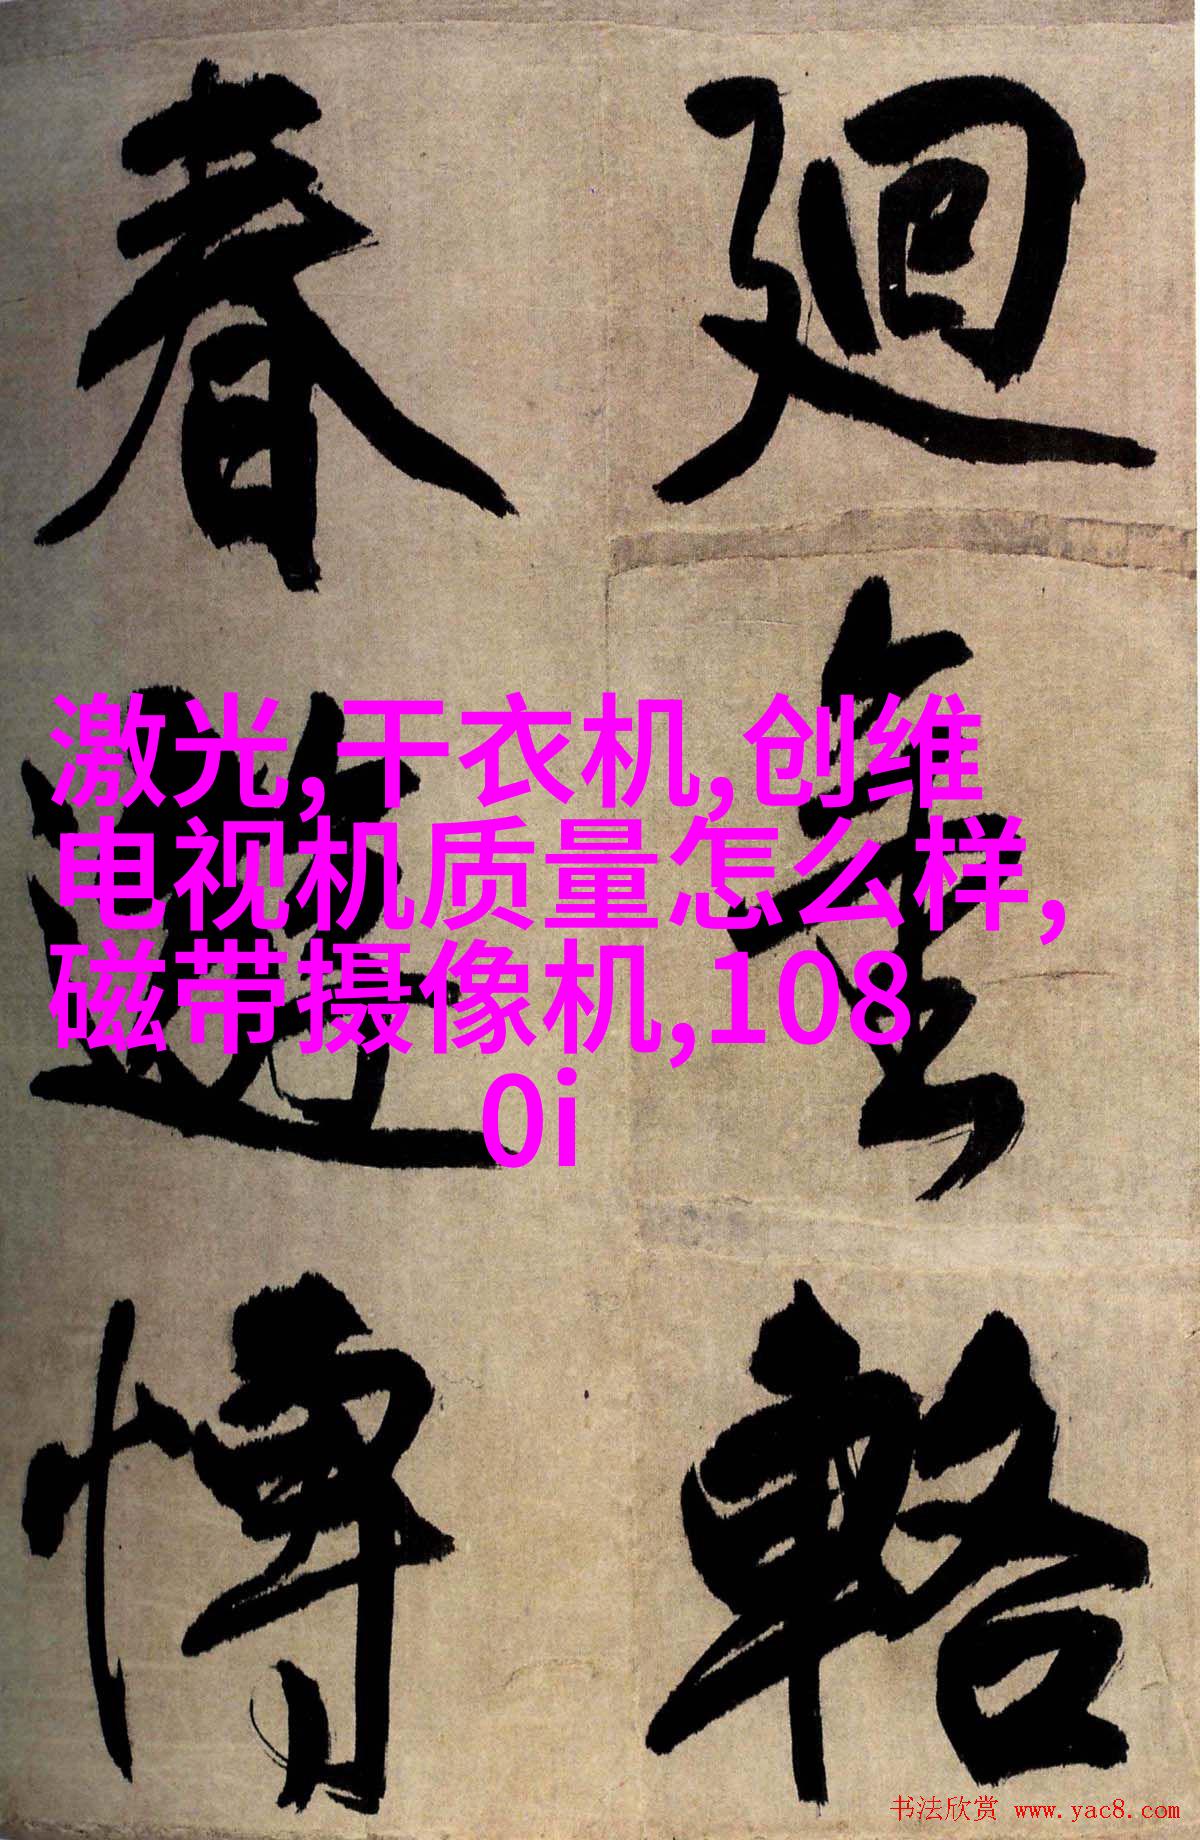 迴金輅
春遊博
激光,干衣机,创维
电视机质量怎么样,
磁带摄像机,108
0i
书法欣赏 www.yac8.com